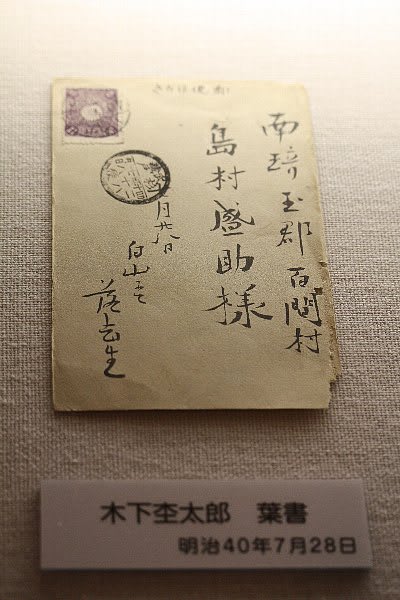 郵便はかき
南埼玉郡百間村
島村盛助様
月廿八日
白山
生
木下杢太郎 葉書
明治40年7月28日